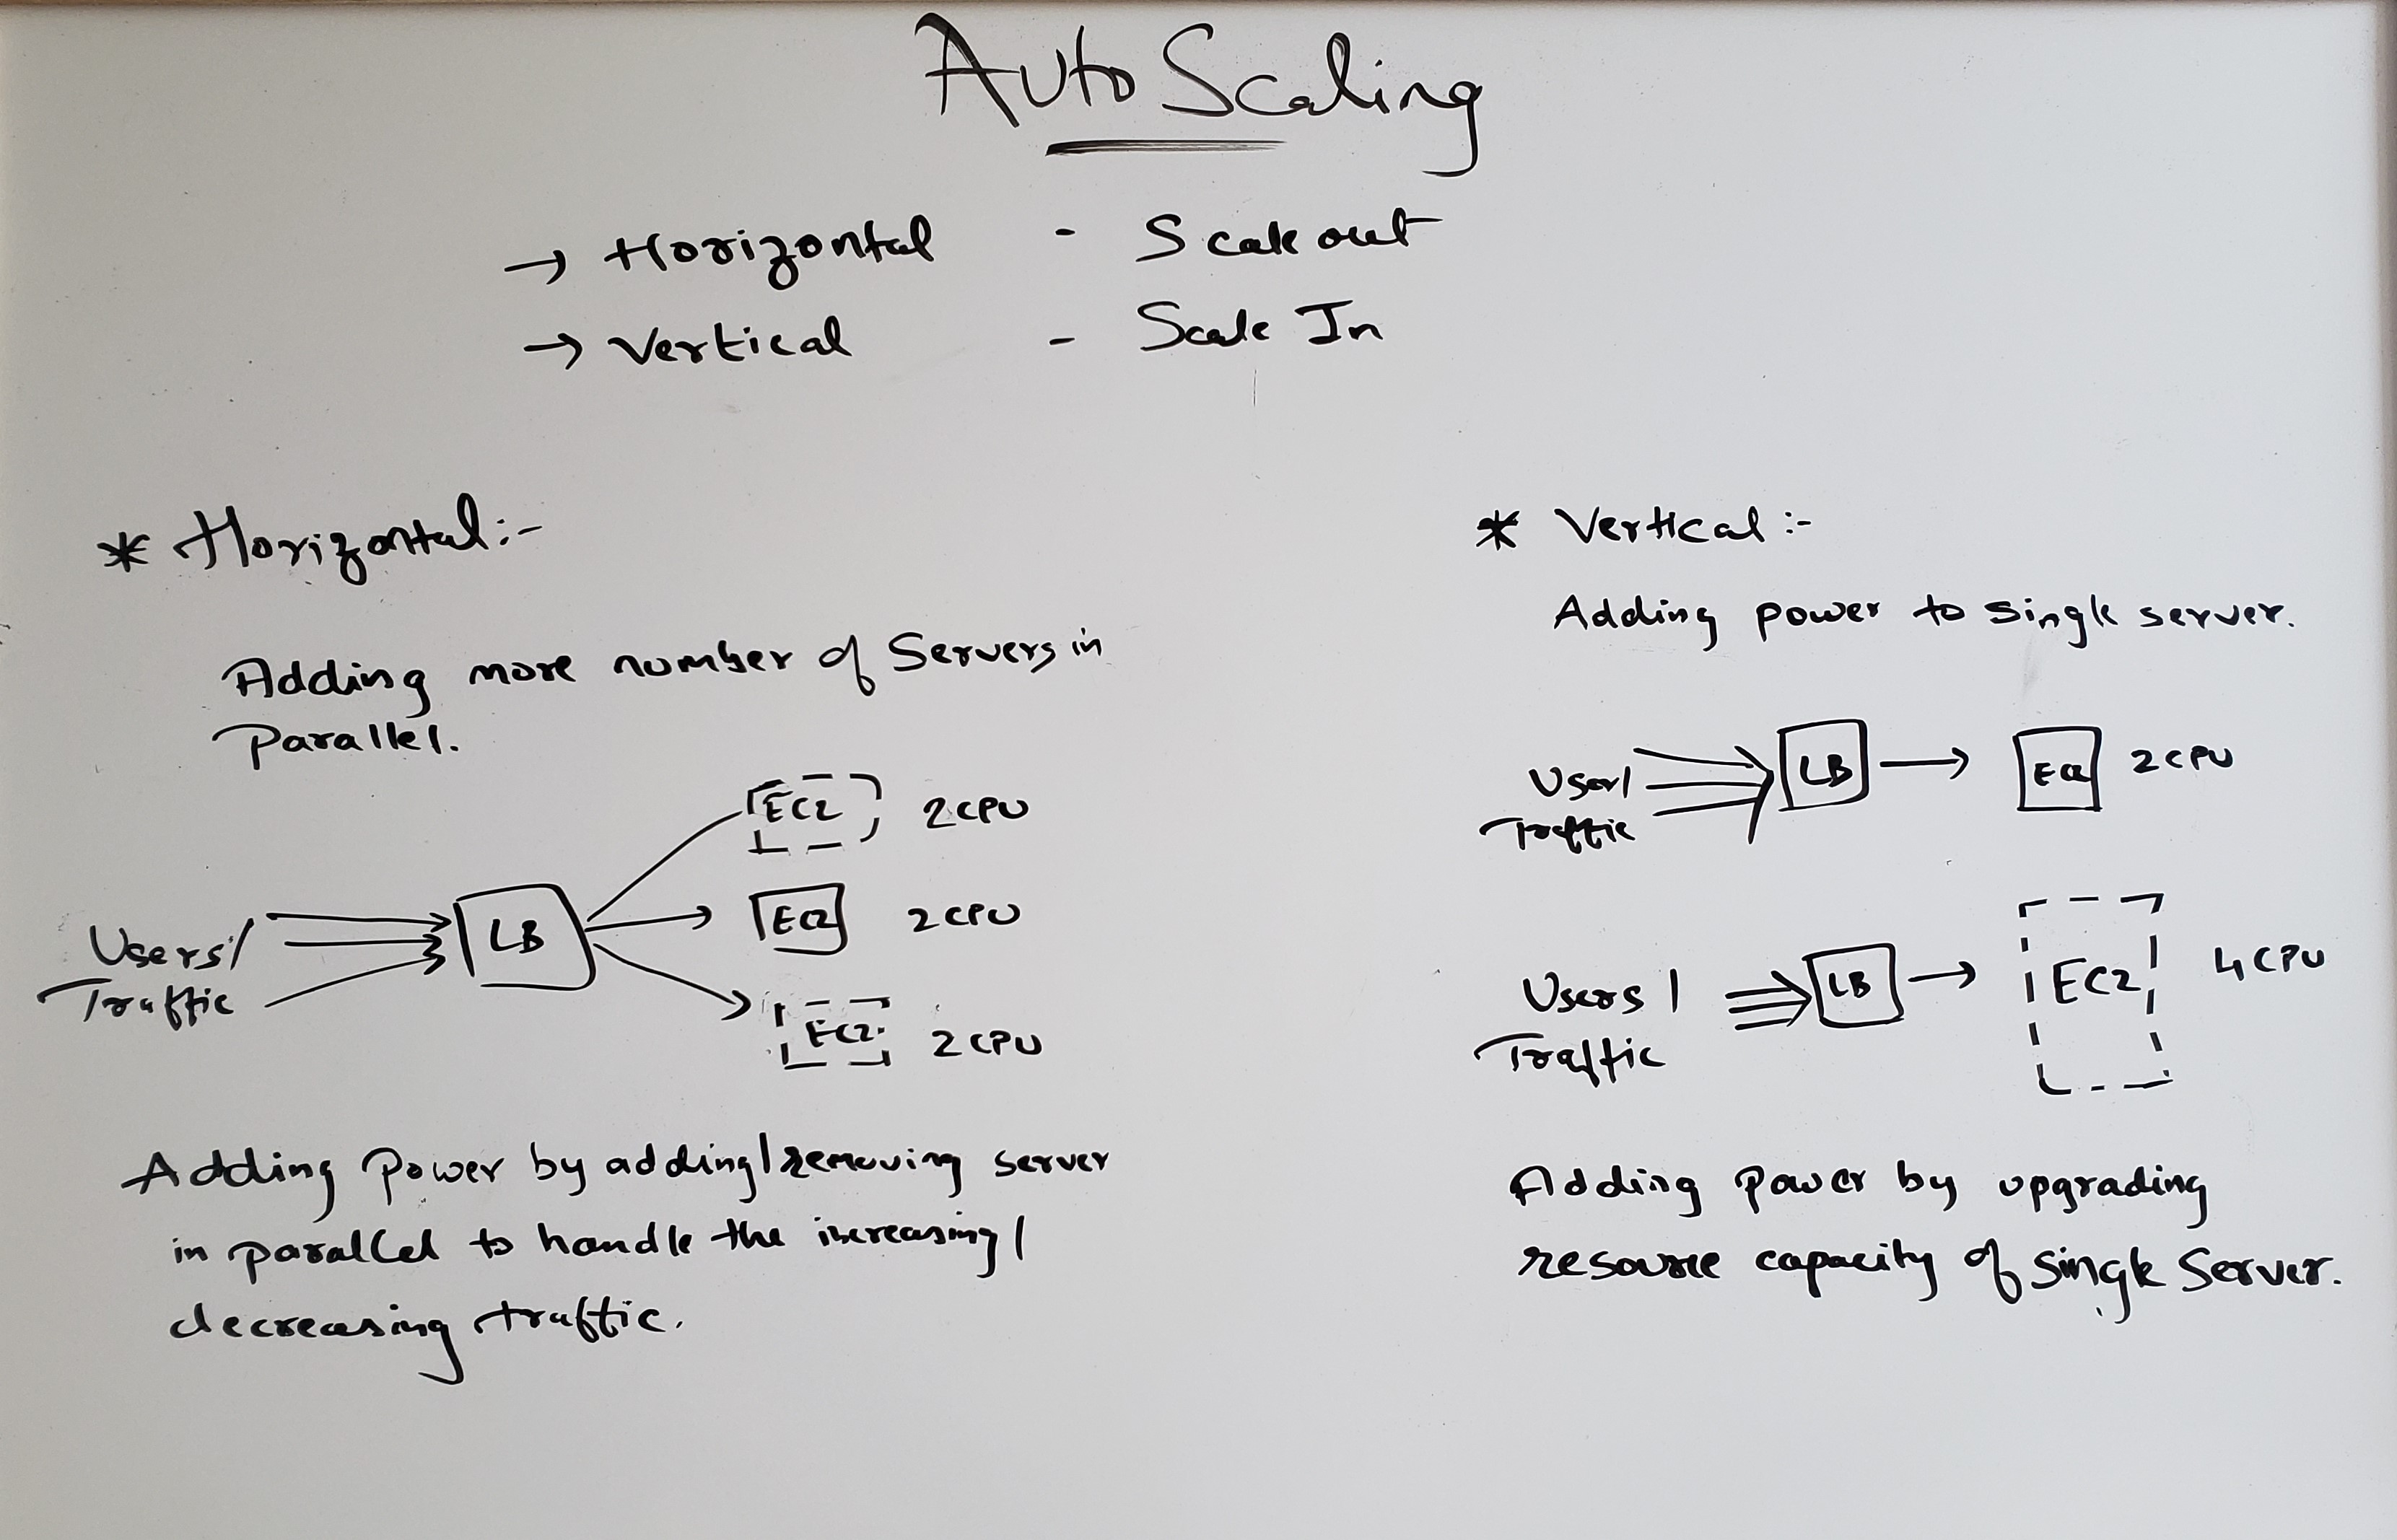 Auto Scaling
→ Horizontal - Scale out
→ Vertical - Scale In
* Horizontal:-
Adding more number of Servers in
Parallel.
EC2 2CPU
Users/
Traffic
LB
EC2 2CPU
EC2 2CPU
Adding Power by adding/removing server
in parallel to handle the increasing/
decreasing traffic.
* Vertical:-
Adding power to single server.
User/
Traffic
LB → EC2 2CPU
Users/
Traffic
LB → EC2 4CPU
Adding power by upgrading
resource capacity of single Server.